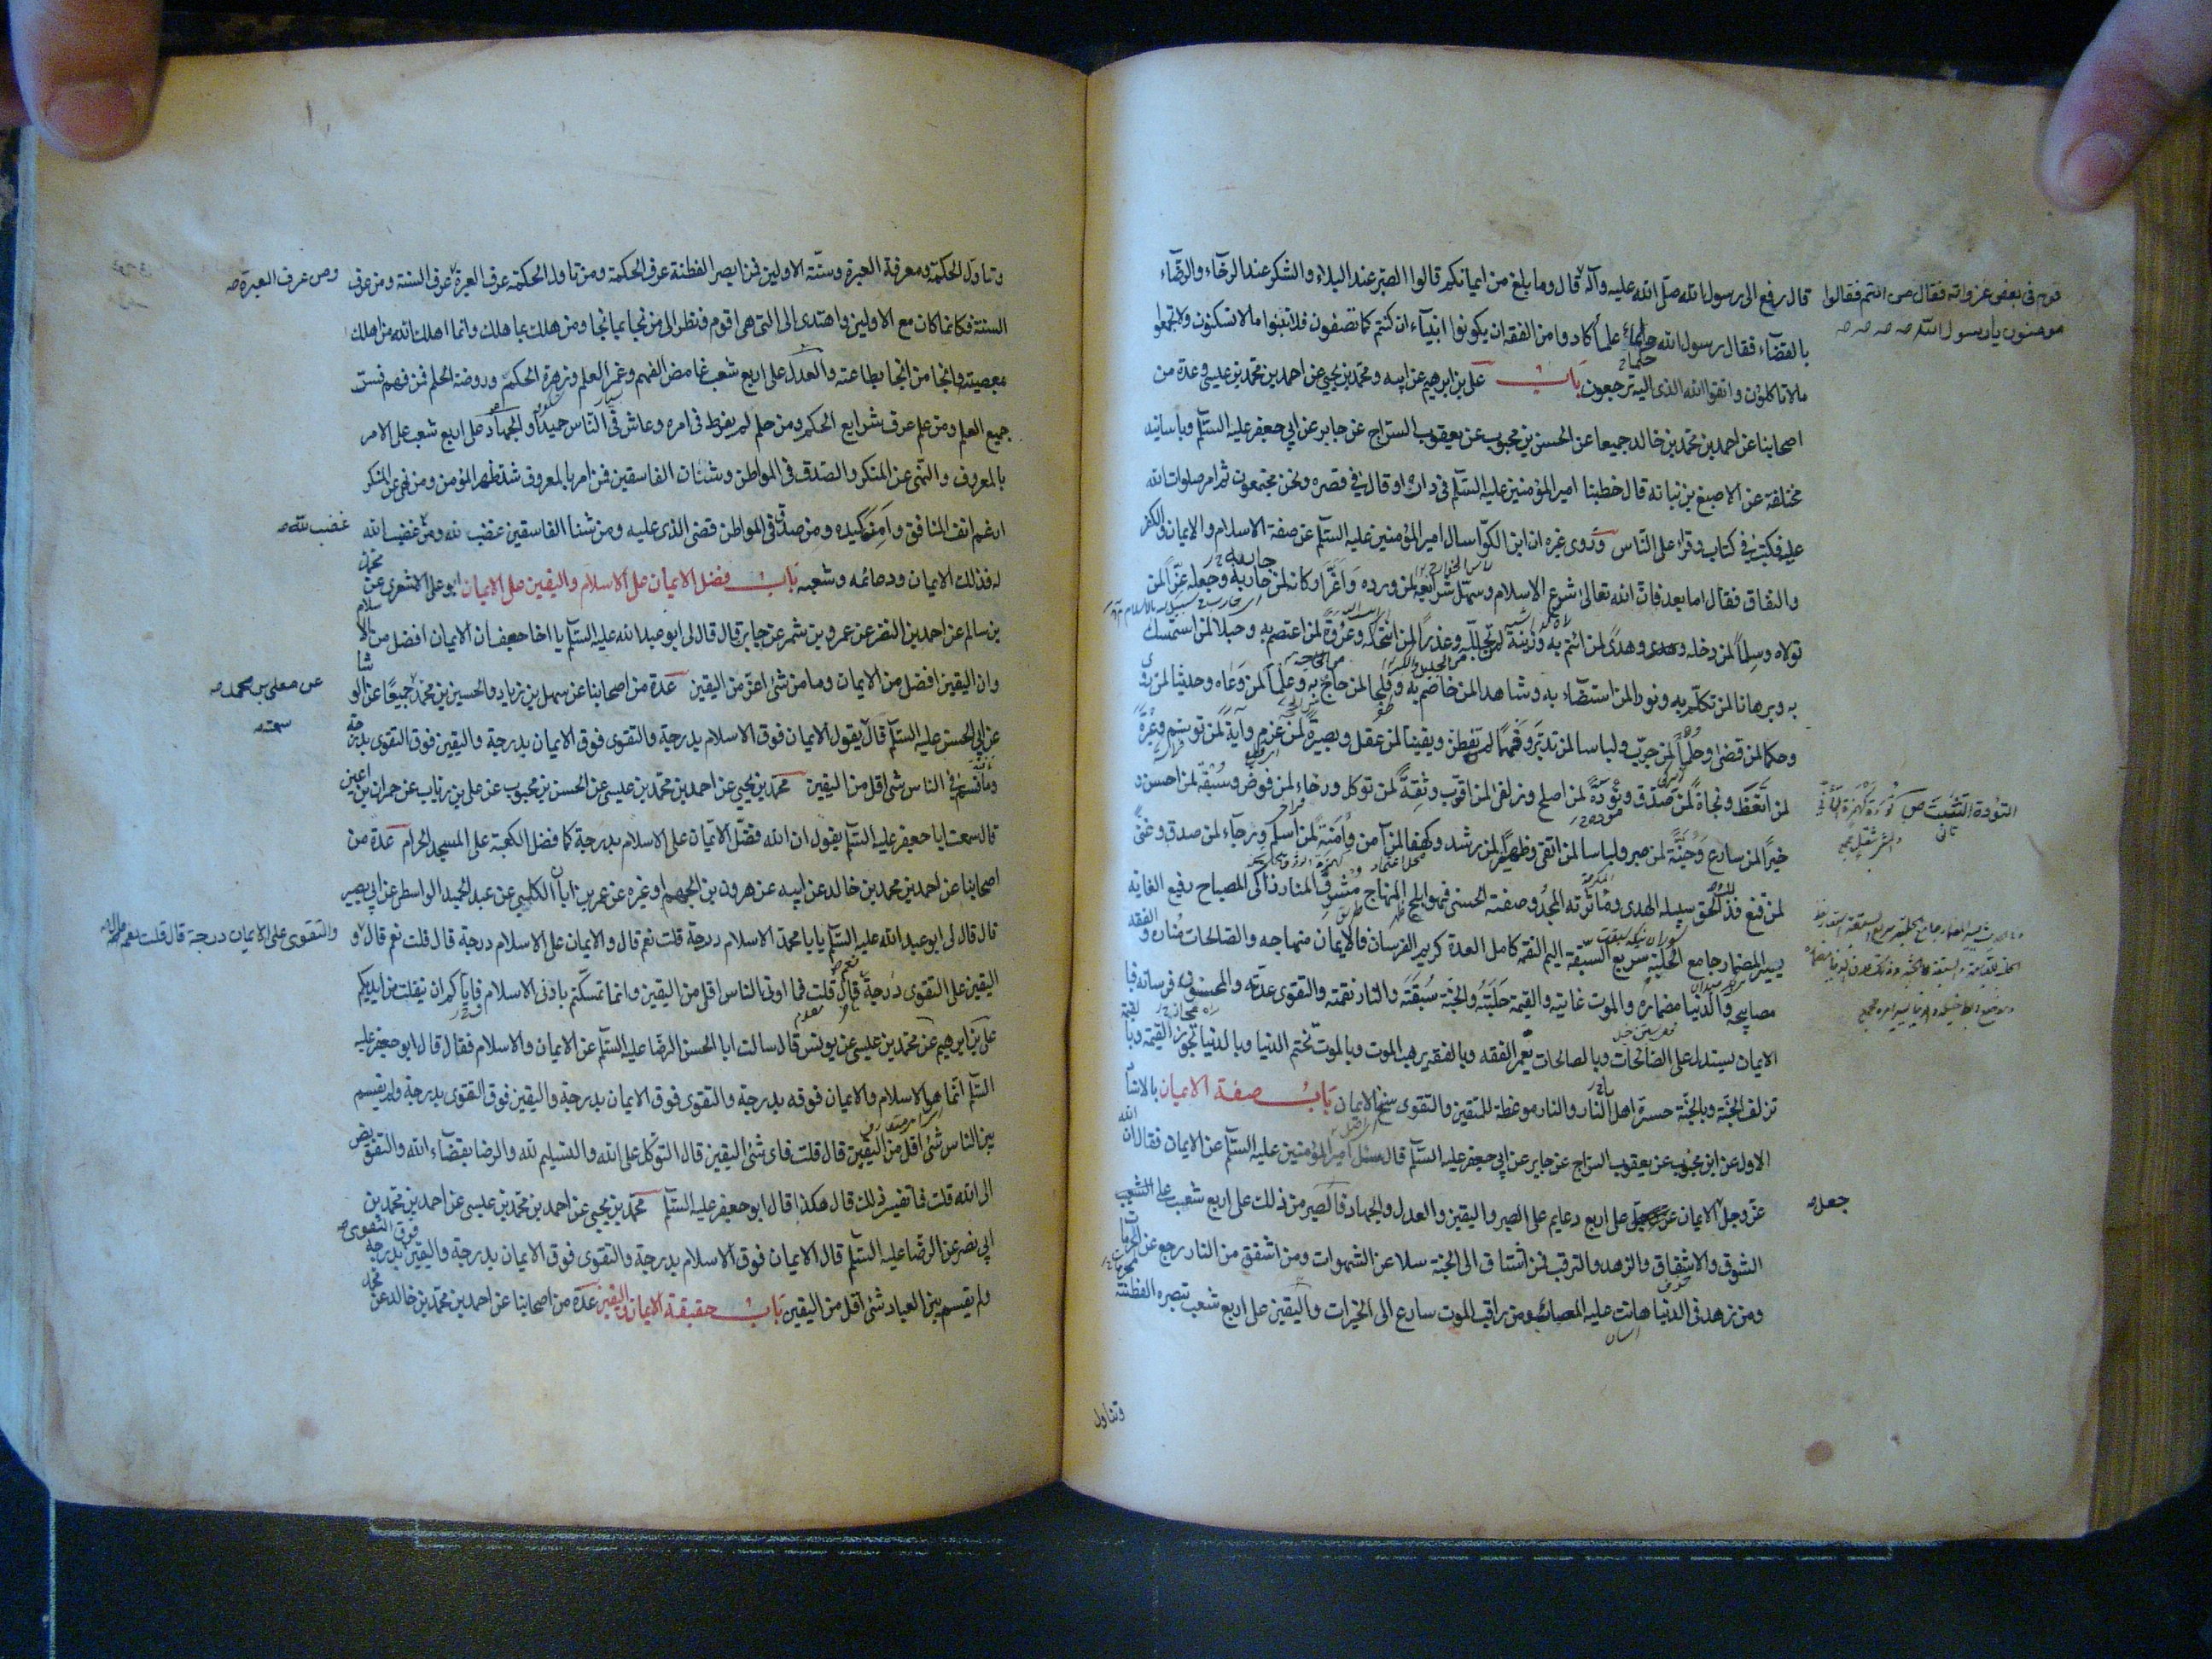 قال رفع الى رسول الله صلى الله عليه وآله قال وما بلغ من ايمانكم قالوا الصبر عند البلاء والشكر عند الرخاء والرضاء
بالقضاء فقال رسول الله حلماء علماء كادوا من الفقه ان يكونوا انبياء ان كنتم كما تصفون فلا تبنوا ما لا تسكنون ولا تجمعوا
ما لا تاكلون واتقوا الله الذى اليه ترجعون باب على بن ابرهيم عن ابيه ومحمد بن يحيى عن احمد بن محمد بن عيسى وعدة من
اصحابنا عن احمد بن محمد بن خالد جميعا عن الحسن بن محبوب عن يعقوب السراج عن جابر عن ابى جعفر عليه السلم وباسانيد
مختلفة عن الاصبغ بن نباته قال خطبنا امير المؤمنين عليه السلم فى داره او قال فى قصره ونحن مجتمعون ثم امر صلوات الله
عليه فكتب فى كتاب وقرا على الناس وروى غيره ان ابن الكوا سال امير المؤمنين عليه السلم عن صفة الاسلام والايمان والكفر
والنفاق فقال اما بعد فان الله تعالى شرع الاسلام وسهل شرايعه لمن ورده واعز اركانه لمن حاربه وجعله عزا لمن
تولاه وسلما لمن دخله وهدى لمن ائتم به وزينة لمن تجلله وعذرا لمن انتحله وعروة لمن اعتصم به وحبلا لمن استمسك
به وبرهانا لمن تكلم به ونورا لمن استضاء به وشاهدا لمن خاصم به وفلجا لمن حاج به وعلما لمن وعاه وحديثا لمن روى
وحكما لمن قضى وحلما لمن جرب ولباسا لمن تدبر وفهما لمن تفطن ويقينا لمن عقل وبصيرة لمن عزم وآية لمن توسم وعبرة
لمن اتعظ ونجاة لمن صدق وتؤدة لمن اصلح وزلفى لمن اقترب وثقة لمن توكل ورخاء لمن فوض وسبقة لمن احسن و
خيرا لمن سارع وجنة لمن صبر ولباسا لمن اتقى وظهيرا لمن رشد وكهفا لمن آمن وامنة لمن اسلم ورجاء لمن صدق وغنى
لمن قنع فذلك الحق سبيله الهدى ومأثرته المجد وصفته الحسنى فهو ابلج المنهاج مشرق المنار ذاكى المصباح رفيع الغاية
يسير المضمار جامع الحلبة سريع السبقة اليم النقمة كامل العدة كريم الفرسان فالايمان منهاجه والصالحات مناره والفقه
مصابيحه والدنيا مضماره والموت غايته والقيمة حلبته والجنة سبقته والنار نقمته والتقوى عدته والمحسنون فرسانه فبا
الايمان يستدل على الصالحات وبالصالحات يعمر الفقه وبالفقه يرهب الموت وبالموت تختم الدنيا وبالدنيا تجوز القيمة وبا
تزلف الجنة وبالجنة حسرة اهل النار والنار موعظة للمتقين والتقوى سنخ الايمان باب صفة الايمان بالاسنا
الاول عن ابن محبوب عن يعقوب السراج عن جابر عن ابى جعفر عليه السلم قال سئل امير المؤمنين عليه السلم عن الايمان فقال ان الله
عز وجل الايمان على اربع دعايم على الصبر واليقين والعدل والجهاد فالصبر من ذلك على اربع شعب على
الشوق والاشفاق والزهد والترقب فمن اشتاق الى الجنة سلا عن الشهوات ومن اشفق من النار رجع عن الحرمات
ومن زهد فى الدنيا هانت عليه المصائب ومن راقب الموت سارع الى الخيرات واليقين على اربع شعب تبصره الفطنة
وتناول
قوم فى بعض غزواته فقال من القوم فقالوا
مومنون يا رسول الله
جعل
وتاول الحكمة ومعرفة العبرة وسنة الاولين فمن ابصر الفطنة عرف الحكمة ومن تاول الحكمة عرف العبرة عرف السنة ومن عرف
السنة فكانما كان مع الاولين واهتدى الى التى هى اقوم فنظر الى من نجا بما نجا ومن هلك بما هلك وانما اهلك الله من اهلك
بمعصيته وانجا من انجا بطاعته والعدل على اربع شعب غامض الفهم وغمر العلم وزهرة الحكمة وروضة الحلم فمن فهم فسر
جميع العلم ومن علم عرف شرايع الحكم ومن حلم لم يفرط فى امره وعاش فى الناس حميدا والجهاد على اربع شعب على الامر
بالمعروف والنهى عن المنكر والصدق فى المواطن وشنئان الفاسقين فمن امر بالمعروف شد ظهر المؤمن ومن نهى عن المنكر
ارغم انف المنافق وامن كيده ومن صدق فى المواطن قضى الذى عليه ومن شنا الفاسقين غضب لله ومن غضب الله
له فذلك الايمان ودعائمه وشعبه باب فضل الايمان على الاسلام واليقين على الايمان ابو على الاشعرى عن محمد
بن سالم عن احمد بن النضر عن عمرو بن شمر عن جابر قال قال لى ابو عبد الله عليه السلم يا اخا جعف ان الايمان افضل من الاسلام
وان اليقين افضل من الايمان وما من شئ اعز من اليقين عدة من اصحابنا عن سهل بن زياد والحسين بن محمد جميعا عن الوشا
عن ابى الحسن عليه السلم قال يقول الايمان فوق الاسلام بدرجة والتقوى فوق الايمان بدرجة واليقين فوق التقوى بدرجة
وما قسم فى الناس شئ اقل من اليقين محمد بن يحيى عن احمد بن محمد بن عيسى عن الحسن بن محبوب عن على بن رئاب عن حمران بن اعين
قال سمعت ابا جعفر عليه السلم يقول ان الله فضل الايمان على الاسلام بدرجة كما فضل الكعبة على المسجد الحرام عدة من
اصحابنا عن احمد بن محمد بن خالد عن ابيه عن هرون بن الجهم او غيره عن عمر بن ابان الكلبى عن عبد الحميد الواسطى عن ابى بصير
قال قال لى ابو عبد الله عليه السلم يا با محمد الاسلام درجة قلت نعم قال والايمان على الاسلام درجة قال قلت نعم قال و
اليقين على التقوى درجة قال قلت نعم قال فما اوتى الناس اقل من اليقين وانما تمسكتم بادنى الاسلام فاياكم ان يفلت من ايديكم
على بن ابرهيم عن محمد بن عيسى عن يونس قال سالت ابا الحسن الرضا عليه السلم عن الايمان والاسلام فقال قال ابو جعفر عليه
السلم انما هو الاسلام والايمان فوقه بدرجة والتقوى فوق الايمان بدرجة واليقين فوق التقوى بدرجة ولم يقسم
بين الناس شئ اقل من اليقين قال قلت فاى شئ اليقين قال التوكل على الله والتسليم لله والرضا بقضاء الله والتفويض
الى الله قلت فما تفسير ذلك قال هكذا قال ابو جعفر عليه السلم محمد بن يحيى عن احمد بن محمد بن عيسى عن احمد بن محمد بن
ابى نصر عن الرضا عليه السلم قال الايمان فوق الاسلام بدرجة والتقوى فوق الايمان بدرجة واليقين فوق التقوى بدرجة
ولم يقسم بين العباد شئ اقل من اليقين باب حقيقة الايمان واليقين عدة من اصحابنا عن احمد بن محمد بن خالد عن محمد
ومن عرف العبرة
غضب لله
عن معلى بن محمد
والتقوى على الايمان درجة قال قلت نعم